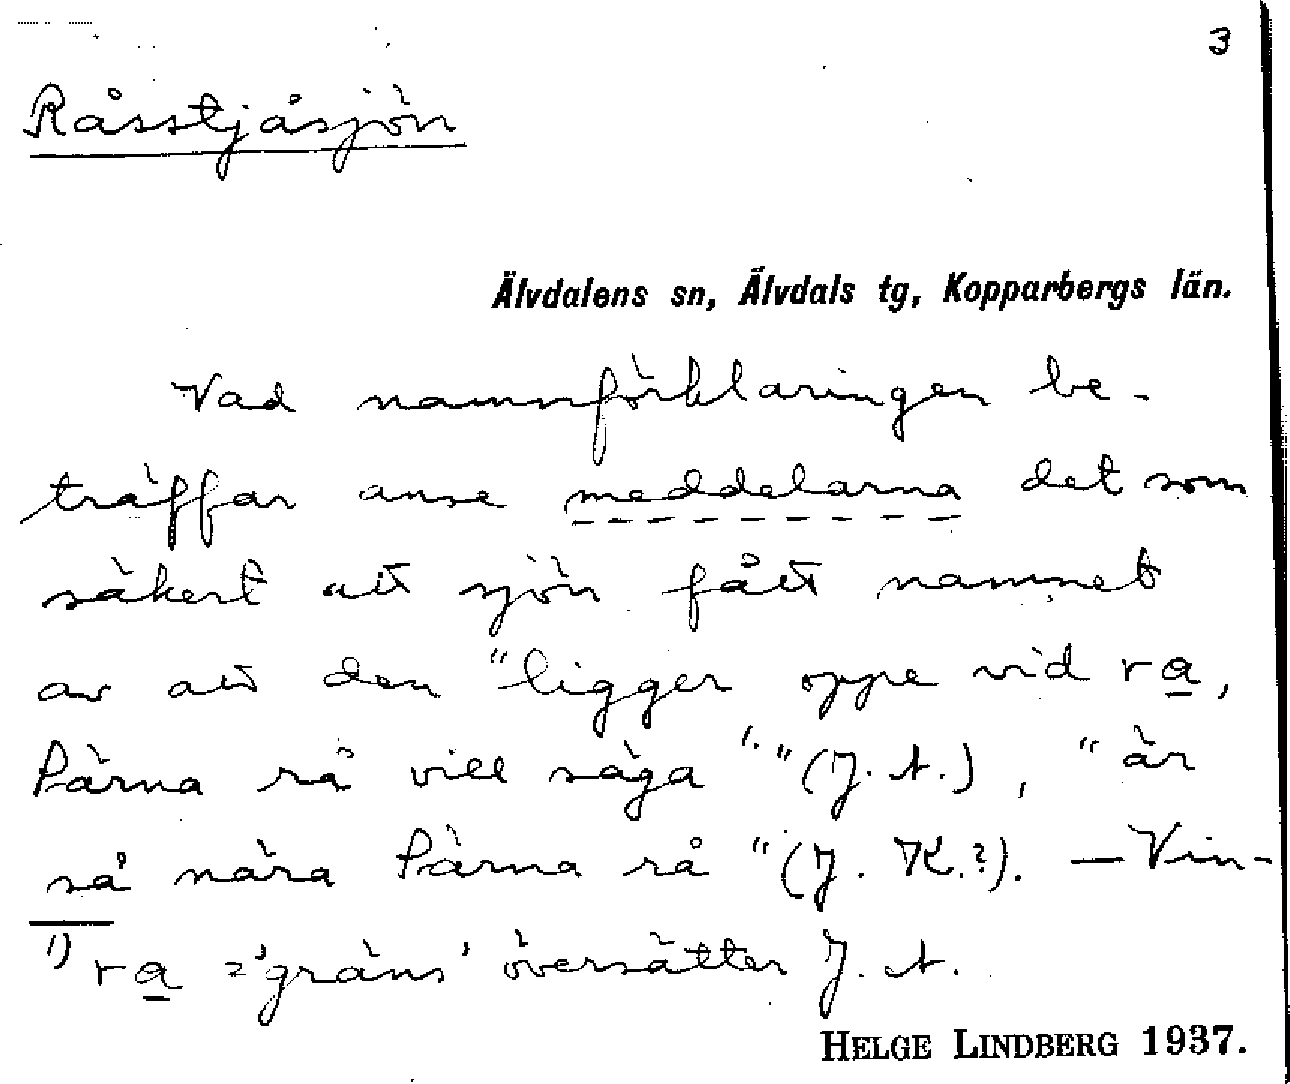 3
Råsstjåsjön
Älvdalens sn, Älvdals tg, Kopparbergs län.
Vad namnförklaringen be-
träffar anse meddelarna det som
säkert att sjön fått namnet
av att den "ligger oppe vid ra,
Särna rå vill säga 1) " (J. A.), "är
så nära Särna rå" (J. K.?). — Vin-
1) ra = 'gräns' översätter J. A.
HELGE LINDBERG 1937.